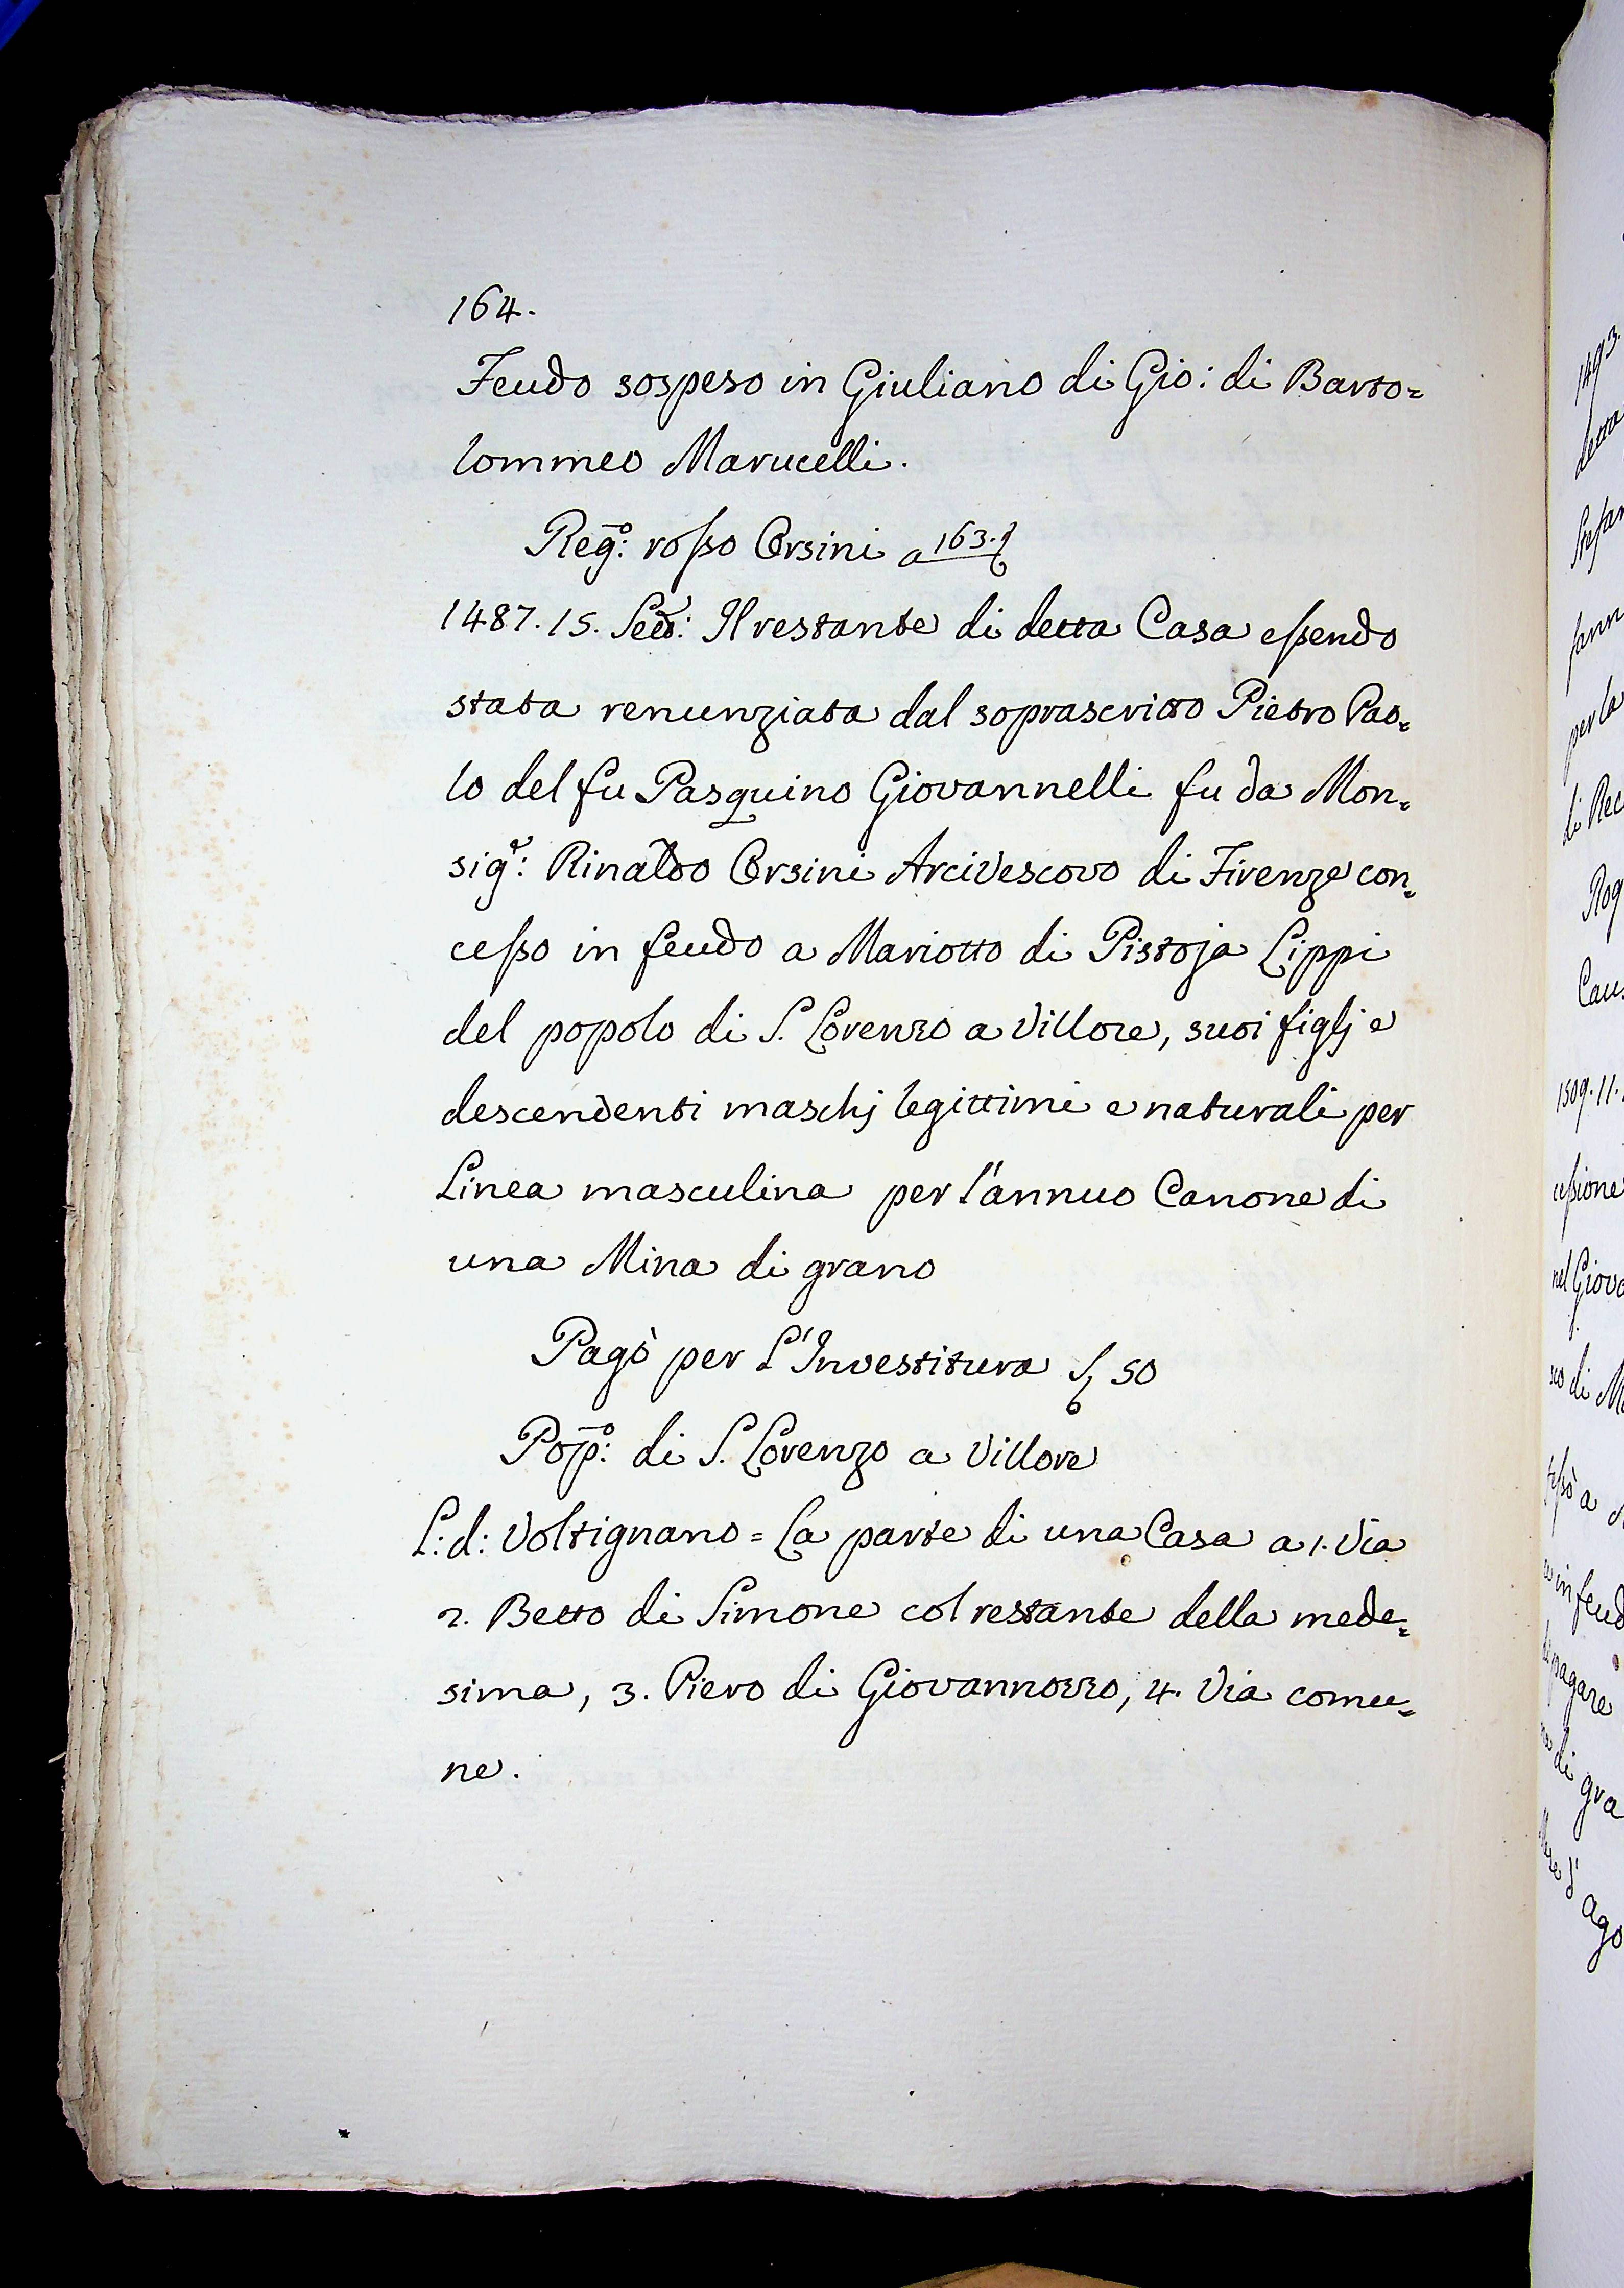 164.
Feudo sospeso in Giuliano di Gio: di Barto=
lommeo Marucelli.
Reg:º rosso Orsini a 163.
1487. 15. Il restante di detta Casa essendo
stata renunziata dal soprascritto Pietro Pao=
lo del fu Pasquino Giovannelli fu da Mon=
sig:r Rinaldo Orsini Arcivescovo di Firenze con=
cesso in feudo a Mariotto di Pistoja Lippi
del popolo di S. Lorenzo a Villore, suoi figlj e
descendenti maschj legittimi e naturali per
Linea masculina per l'annuo Canone di
una Mina di grano
Pagò per L'Investitura 50
Pop:º di S. Lorenzo a Villore
L: d: Voltignano = La parte di una Casa a 1. Via
2. Betto di Simone col restante della mede=
sima, 3. Piero di Giovannozzo, 4. Via comu=
ne.
1493.
detta
per la
di
1509. 11.
di
pagare
di gra